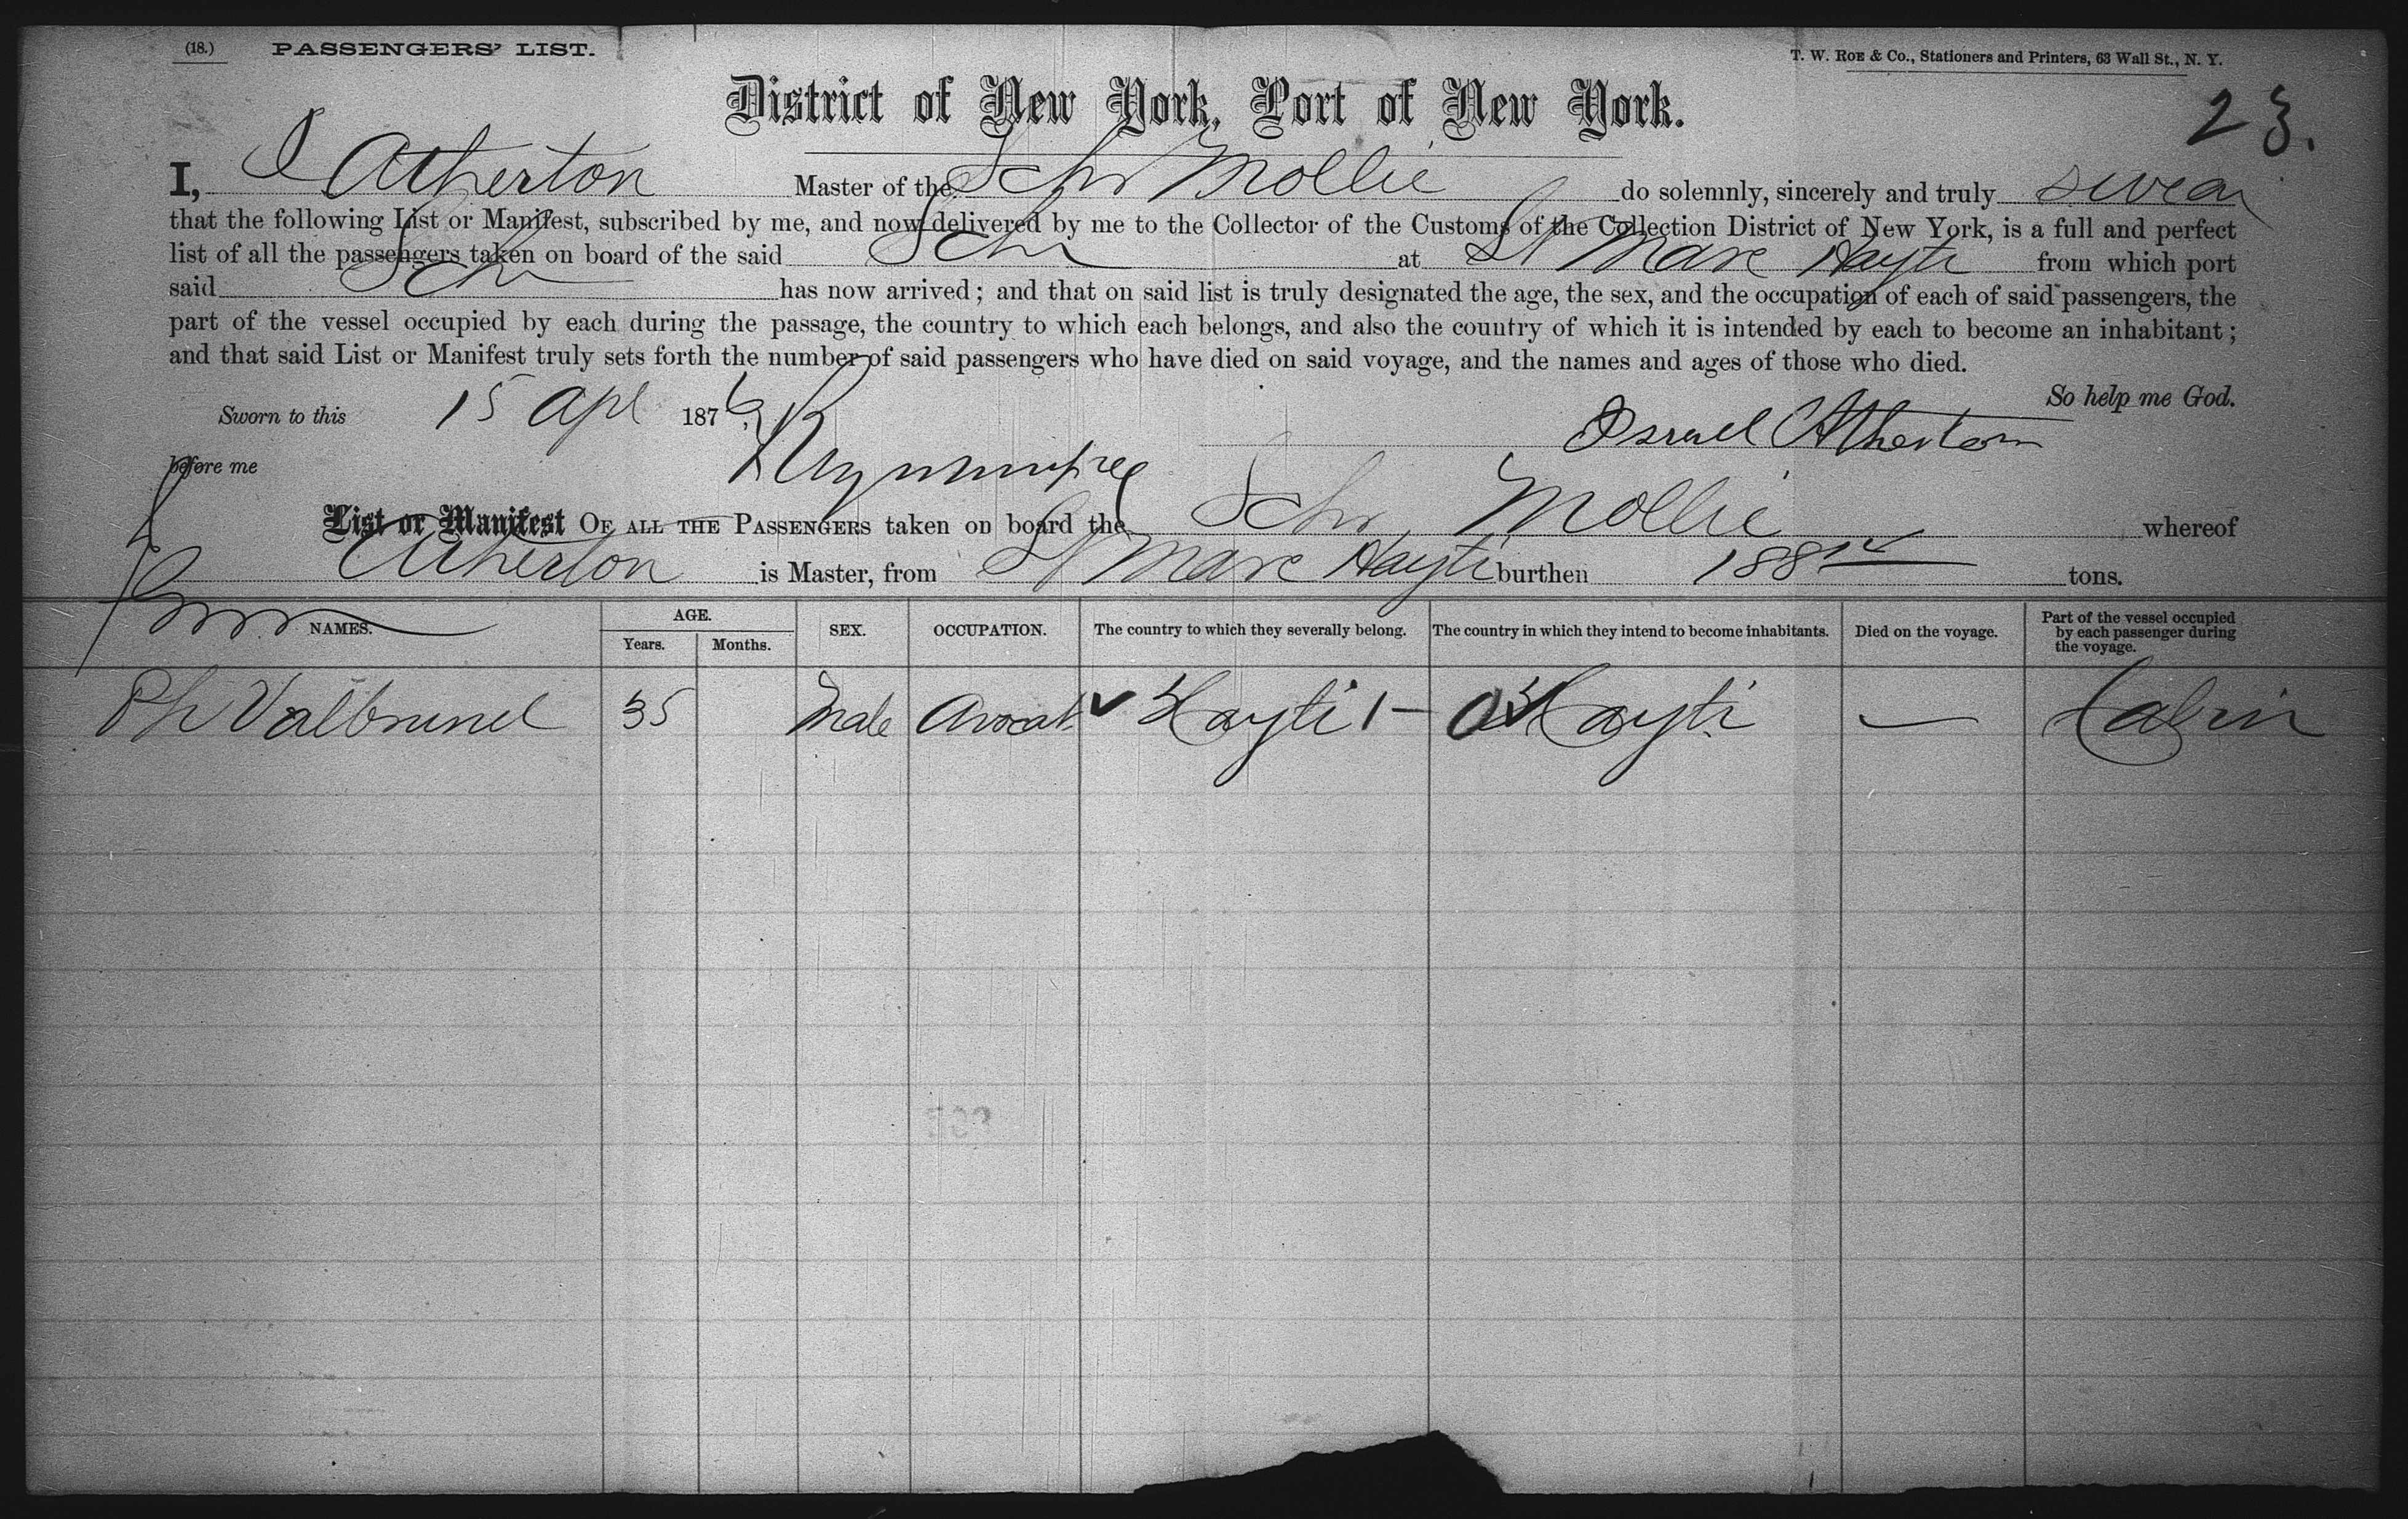 (18.) PASSENGERS' LIST. T. W. ROE & Co., Stationers and Printers, 63 Wall St., N. Y.
District of New York, Port of New York.
23.
I, I Atherton Master of the Schr Mollie do solemnly, sincerely and truly swear
that the following List or Manifest, subscribed by me, and now delivered by me to the Collector of the Customs of the Collection District of New York, is a full and perfect
list of all the passengers taken on board of the said Schr at St Marc Hayti from which port
said Schr has now arrived; and that on said list is truly designated the age, the sex, and the occupation of each of said passengers, the
part of the vessel occupied by each during the passage, the country to which each belongs, and also the country of which it is intended by each to become an inhabitant;
and that said List or Manifest truly sets forth the number of said passengers who have died on said voyage, and the names and ages of those who died.
So help me God.
Sworn to this 15 Apl 1876
Israel Atherton
before me
List or Manifest OF ALL THE PASSENGERS taken on board the Schr Mollie whereof
Atherton is Master, from St Marc Hayti burthen 188 tons.
NAMES. AGE. Years. Months. SEX. OCCUPATION. The country to which they severally belong. The country in which they intend to become inhabitants. Died on the voyage. Part of the vessel occupied by each passenger during the voyage.
Ph Valbrunel 35 Male Avocat Hayti 1 — Hayti — Cabin